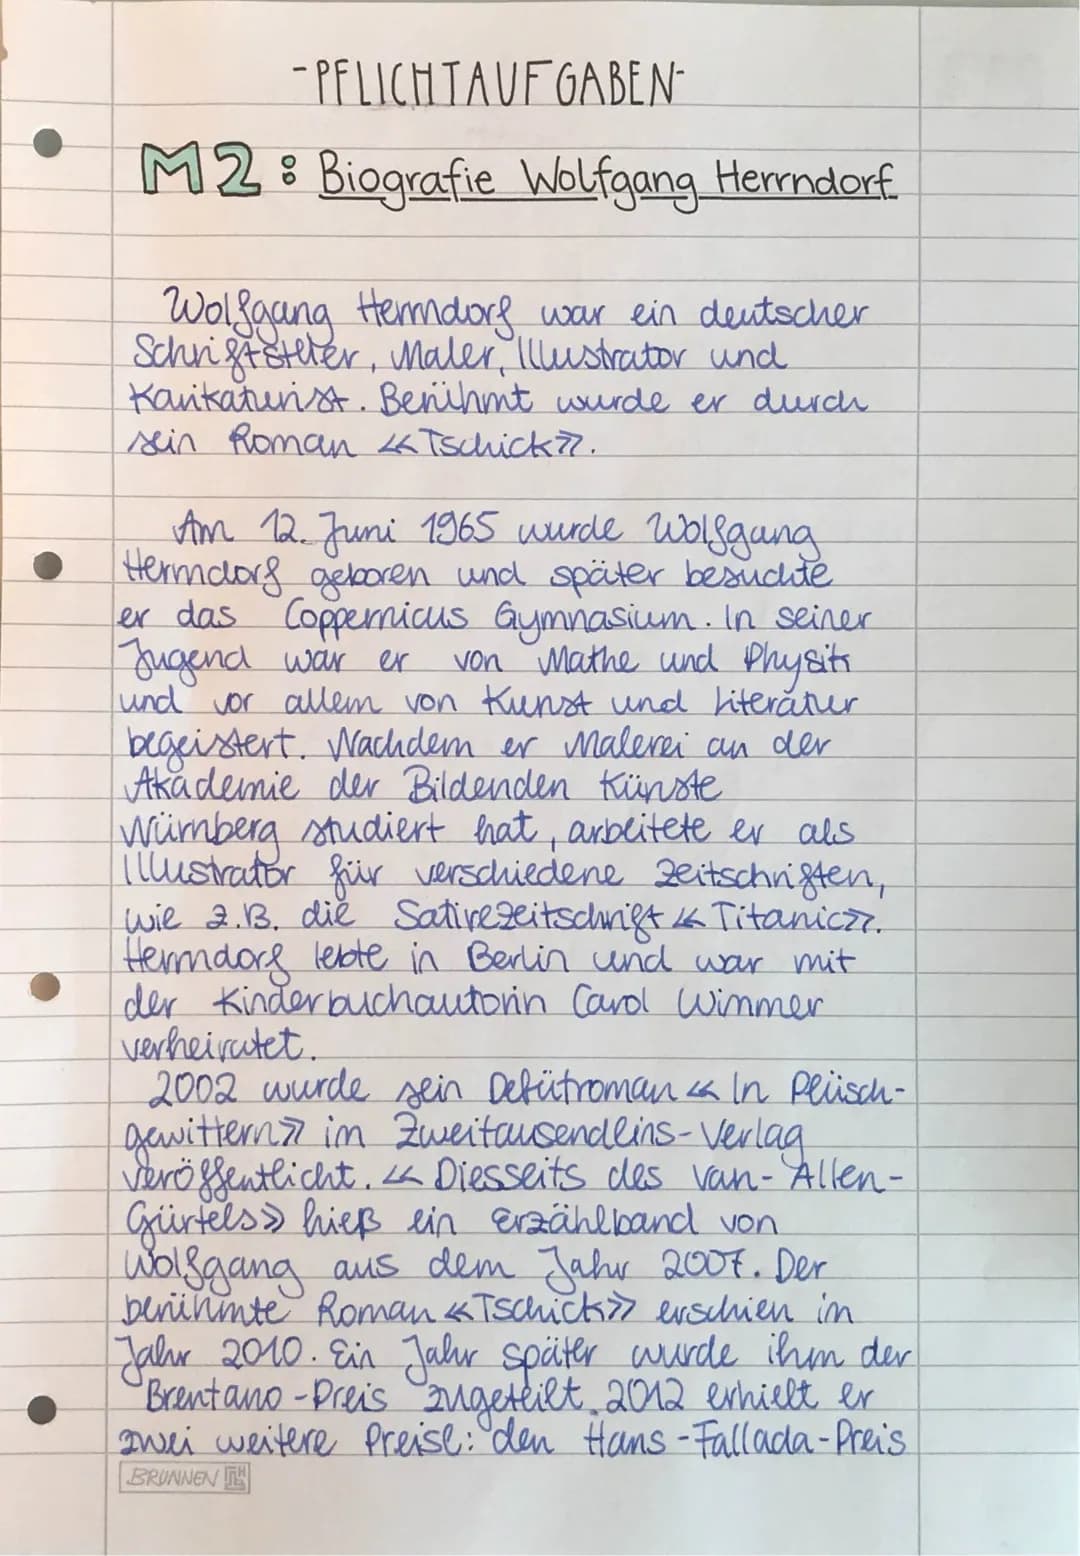 -PFLICHTAUFGABEN-
M2: Biografie Wolfgang Herrndorf
Wolfgang Herrndorf war ein deutscher
Schriftsteller, Maler, Illustrator und
Karikaturist. Berühmt wurde er durch
sein Roman «Tschick».
Am 12. Juni 1965 wurde Wolfgang
Herrndorf geboren und später besuchte
er das Coppernicus Gymnasium. In seiner
Jugend war er von Mathe und Physik
und vor allem von Kunst und Literatur
begeistert. Nachdem er Malerei an der
Akademie der Bildenden Künste
Nürnberg studiert hat, arbeitete er als
Illustrator für verschiedene Zeitschriften,
wie z.B. die Satirezeitschrift «Titanic».
Herrndorf lebte in Berlin und war mit
der Kinderbuchautorin Carol Wimmer
verheiratet.
2002 wurde sein Debütroman «In Plüsch-
gewittern» im Zweitausendeins-Verlag
veröffentlicht. «Diesseits des Van-Allen-
Gürtels» hieß ein Erzählband von
Wolfgang aus dem Jahr 2007. Der
berühmte Roman «Tschick» erschien im
Jahr 2010. Ein Jahr später wurde ihm der
Brentano-Preis zugeteilt. 2012 erhielt er
zwei weitere Preise: den Hans-Fallada-Preis
BRUNNEN